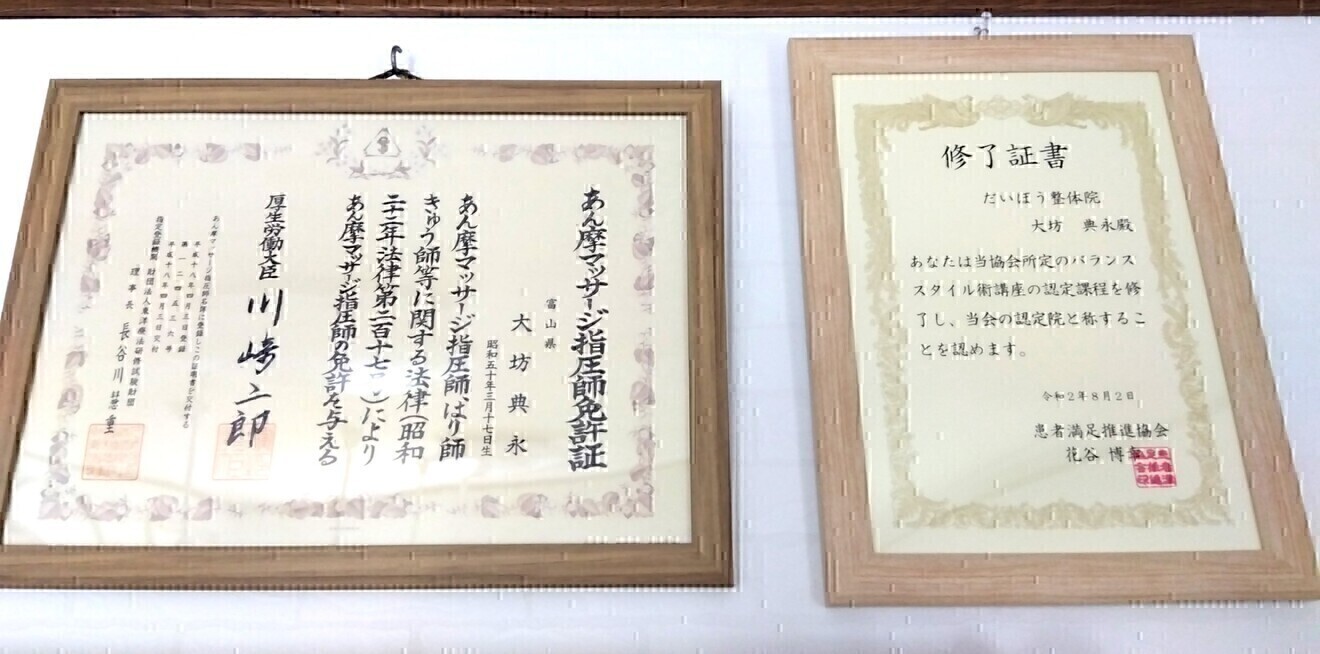 あん摩マッサージ指圧師免許証
富山県
大坊典永
昭和五十年三月十七日生
あん摩マッサージ指圧師、はり師
きゅう師等に関する法律(昭和
二十二年法律第二百十七号)により
あん摩マッサージ指圧師の免許を与える
厚生労働大臣 川崎二郎
あん摩マッサージ指圧師名簿に登録しこの証明書を交付する
平成十八年四月三日登録
平成十八年四月三日交付
指定登録機関 財団法人東洋療法研修試験財団
理事長 長谷川慧重
修了証書
だいぼう整体院
大坊 典永殿
あなたは当協会所定のバランス
スタイル術講座の認定課程を修
了し、当会の認定院と称するこ
とを認めます。
令和2年8月2日
患者満足推進協会
花谷 博幸